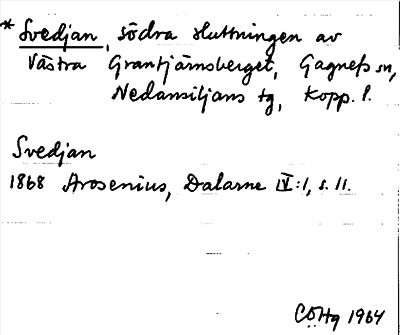 * Svedjan, södra sluttningen av
Västra Grantjärnsberget, Gagnefs sn,
Nedansiljans tg, Kopp. l.
Svedjan
1868 Arosenius, Dalarne IV:1, s. 11.
CÖHg 1964